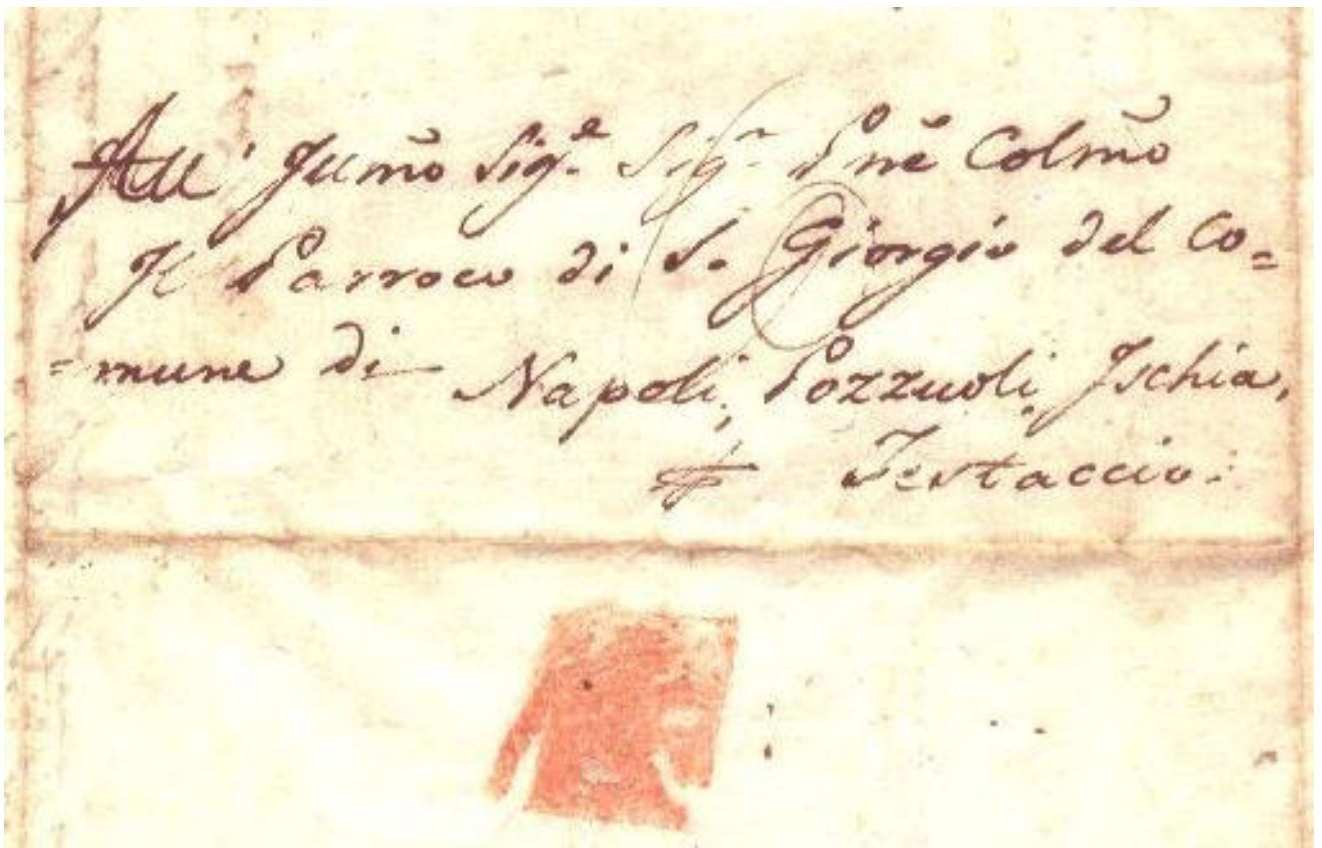 All' Illmõ Sig.e Sig.r P̃ne Colmõ
Il Parroco di S. Giorgio del Co=
=mune di Napoli, Pozzuoli, Ischia,
Testaccio.